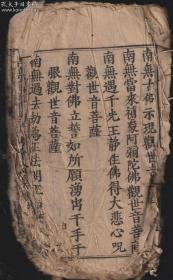 南無千佛示現觀世音菩薩
南無當來補處阿彌陀佛觀世音菩薩
南無遇千光王靜住佛得大悲心呪
觀世音菩薩
南無對佛立誓如所願湧出千手千
眼觀世音菩薩
南無過去劫為正法明王